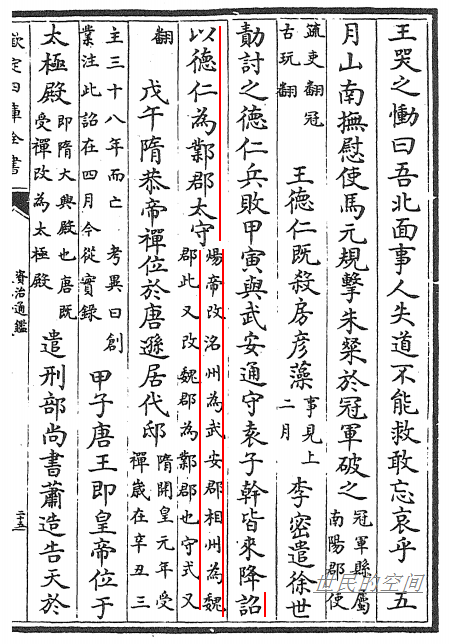 王哭之慟曰吾北面事人失道不能救敢忘哀乎 五
月山南撫慰使馬元規擊朱粲於冠軍破之 冠軍縣屬
南陽郡使
疏吏翻冠
古玩翻
王德仁既殺房彥藻 事見上
二月
李密遣徐世
勣討之德仁兵敗甲寅與武安通守袁子幹皆來降詔
以德仁為鄴郡太守 煬帝改洺州為武安郡相州為魏
郡此又改魏郡為鄴郡也守式又
翻 戊午隋恭帝禪位於唐遜居代邸 隋開皇元年受
禪歲在辛丑三
主三十八年而亡 考異曰創
業注此詔在四月今從實錄
甲子唐王即皇帝位于
太極殿 即隋大興殿也唐既
受禪改為太極殿
遣刑部尚書蕭造告天於
欽定四庫全書
資治通鑑
世民的空间